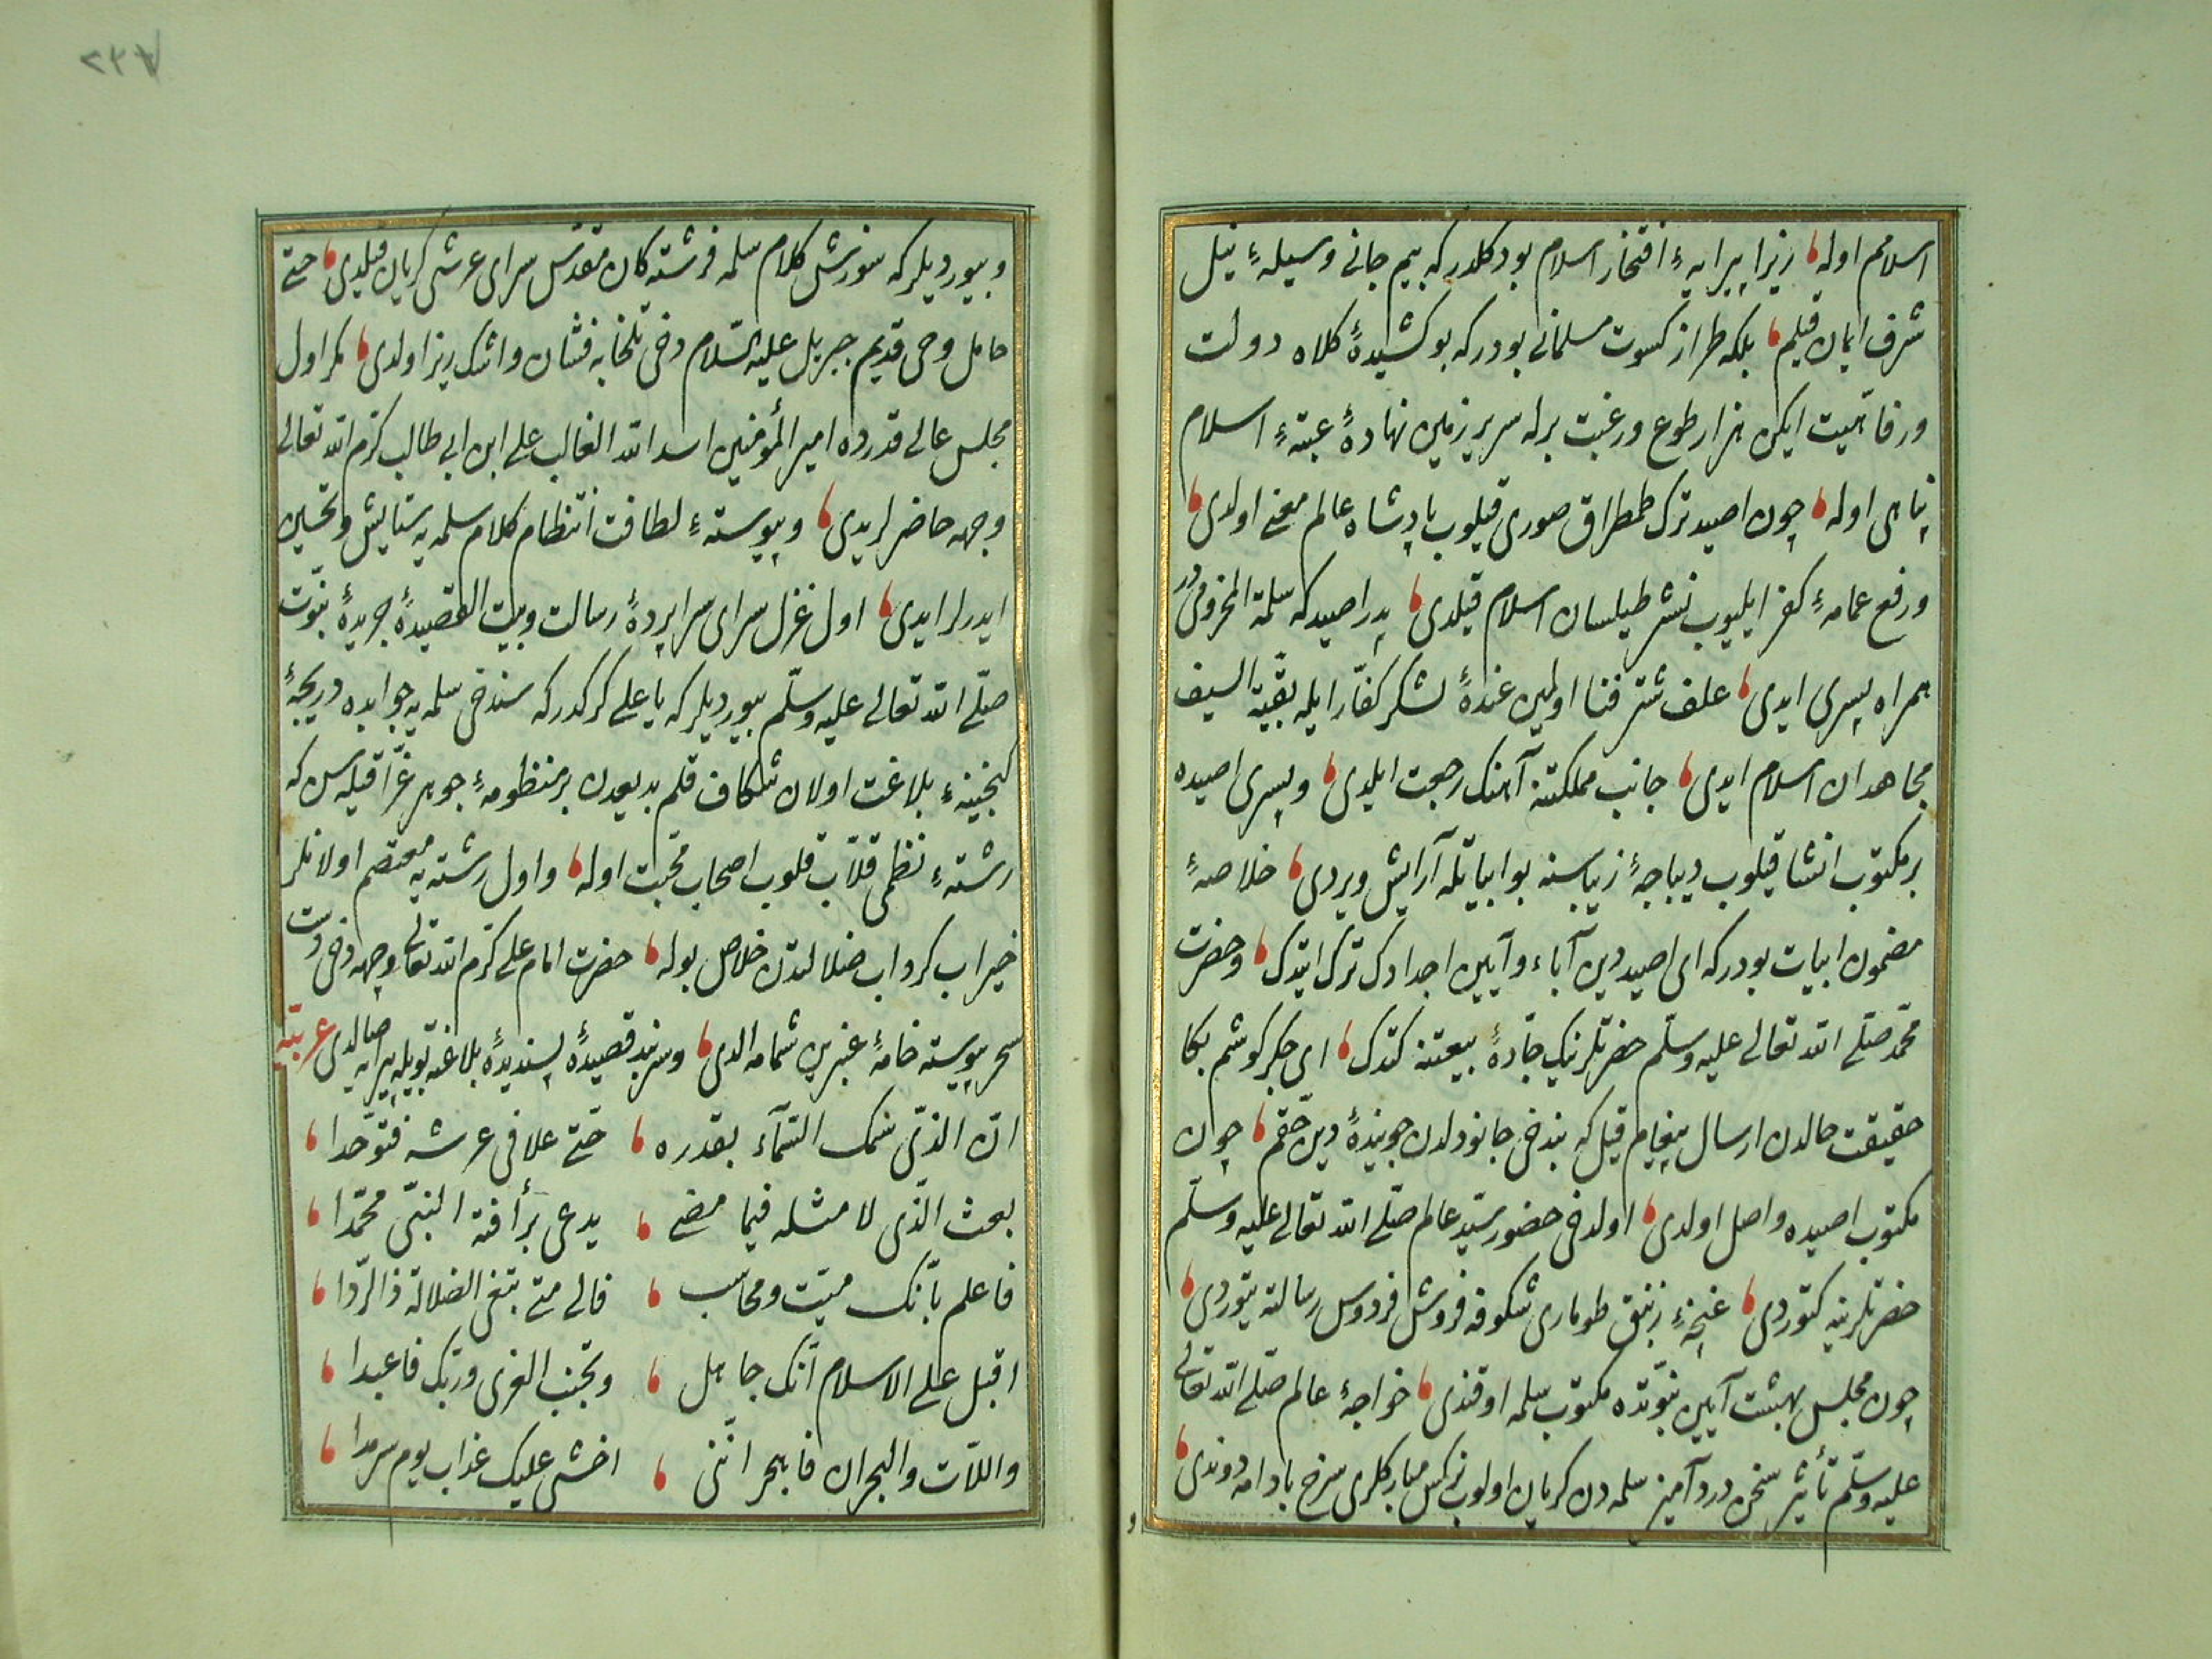 اسلامم اوله، زیرا پیرایهٔ افتخار اسلام بو دکلدر که بیم جانی وسیلهٔ نیل
شرف ایمان قیلم، بلکه طراز کسوت مسلمانی بودر که بو کشیدهٔ کلاه دولت
ورفاهیت ایکن هزار طوع ورغبت برله سریر زمین نهادهٔ عتبهٔ اسلام
پناهی اوله، چون اصید ترک طمطراق صوری قیلوب پادشاه عالم معنی اولدی،
ورفع عمامهٔ کفر ایلیوب نشر طیلسان اسلام قیلدی، پدر اصید که سلمة المخزومی در
همراه پسری ایدی، علف شتر فنا اولمین عندهٔ لشکر کفار ایله بقیة السیف
مجاهدان اسلام ایدی، جانب مملکتنه آهنک رجعت ایلدی، وپسری اصیده
بر مکتوب انشا قیلوب دیباجهٔ زیباسنه بو ابیاتله آرایش ویردی، خلاصهٔ
مضمون ابیات بودر که ای اصید دین آباء وآیین اجدادک ترک ایتدک، وحضرت
محمّد صلّی الله تعالی علیه وسلّم حضرتلرینک جادهٔ بیعتنه کتدک، ای جکر کوشم بکا
حقیقت حالدن ارسال پیغام قیل که بندخی جانودلدن جویندهٔ دین حقم، چون
مکتوب اصیده واصل اولدی، اولدخی حضور سیّد عالم صلّی الله تعالی علیه وسلّم
حضرتلرینه کتوردی، غنچهٔ زنبق طوماری شکوفه فروش فردوس رسالته یتوردی،
چون مجلس بهشت آیین نبوّتده مکتوب سلمه اوقندی، خواجهٔ عالم صلّی الله تعالی
علیه وسلّم تأثیر سخن درد آمیز سلمه دن کریان اولوب نرکس مبارکلری سرخ بادامه دوندی،
وبیوردیلر که سوزش کلام سلمه فرشته کان مقدّس سرای عرشی کریان قیلدی، حتی
حامل وحی قدیم جبریل علیه السّلام دخی تلخابه فشان واشک ریز اولدی، مکر اول
مجلس عالی قدرده امیر المؤمنین اسد الله الغالب علی ابن ابی طالب کرّم الله تعالی
وجهه حاضرلریدی، وپیوستهٔ لطافت انتظام کلام سلمه یه ستایش وتحسین
ایدرلر ایدی، اول غزل سرای سراپردهٔ رسالت وبیت القصیدهٔ جریدهٔ نبوّت
صلّی الله تعالی علیه وسلّم بیوردیلر که یا علی کرکدر که سندخی سلمه یه جوابده دریجهٔ
کنجینهٔ بلاغت اولان شکاف قلم بدیعدن بر منظومهٔ جوهر غرّا قیله سن که
رشتهٔ نظمی قلاّب قلوب اصحاب محبت اوله، واول رشته یه معتصم اولانلر
خیراب کرداب ضلالتدن خلاص بوله، حضرت امام علی کرّم الله تعالی وجهه دخی دست
سحر پیوسته خامهٔ عنبرین شمامه الدی، وسربند قصیدهٔ پسندیدهٔ بلاغته بویله پیرایه صالدی عربیّه
انّ الذّی سمک السّمآء بقدره، حتّی علا فی عرشه فتوحّدا،
بعث الّذی لا مثله فیما مضی، یدعی برأفته النبیّ محمّدا،
فاعلم بانّک میّت ومحاسب، فالی متی تبغی الضلالة ذا الرّدا،
اقبل علی الاسلام انّک جاهل، وتجنب العزی وربّک فاعبدا،
واللاّت والهجران فاهجر انّنی، اخشی علیک عذاب یوم سرمدا،